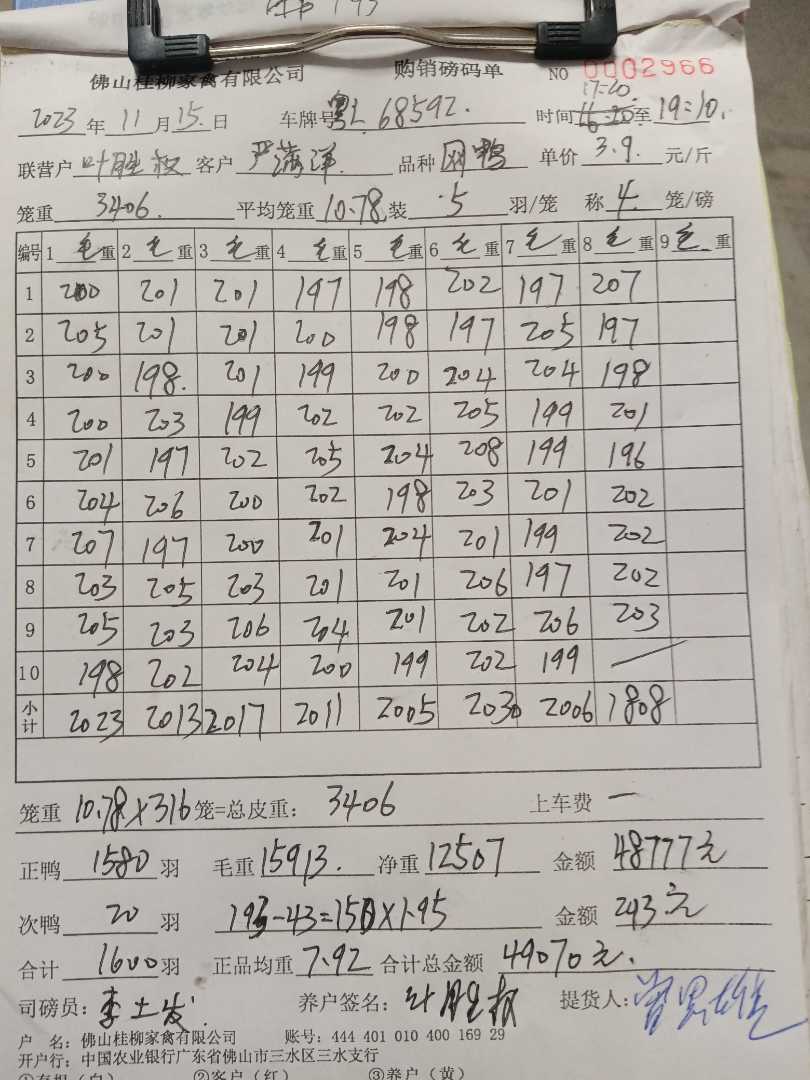 佛山桂柳家禽有限公司 购销磅码单 NO 0002966
17=20
2023 年 11 月 15 日 车牌号 粤L 68592. 时间 至 19=10.
联营户 叶胜权 客户 严满洋 品种 网鸭 单价 3.9. 元/斤
笼重 3406. 平均笼重 10.78 装 5 羽/笼 称 4 笼/磅
编号 1 毛 重 2 毛 重 3 毛 重 4 毛 重 5 毛 重 6 毛 重 7 毛 重 8 毛 重 9 毛 重
1 200 201 201 197 198 202 197 207
2 205 201 201 200 198 197 205 197
3 200 198. 201 199 200 204 204 198
4 200 203 199 202 202 205 199 201
5 201 197 202 205 204 208 199 196
6 204 206 200 202 198 203 201 202
7 207 197 200 201 204 201 199 202
8 203 205 203 201 201 206 197 202
9 205 203 206 204 201 202 206 203
10 198 202 204 200 199 202 199 —
小计 2023 2013 2017 2011 2005 2030 2006 1808
笼重 10.78×316 笼=总皮重: 3406 上车费 —
正鸭 1580 羽 毛重 15913. 净重 12507 金额 48777元
次鸭 20 羽 193-43=150×1.95 金额 293元
合计 1600 羽 正品均重 7.92 合计总金额 49070元.
司磅员: 李土发 养户签名: 叶胜权 提货人:
户 名: 佛山桂柳家禽有限公司 账号: 444 401 010 400 169 29
开户行: 中国农业银行广东省佛山市三水区三水支行
①存根(白) ②客户(红) ③养户(黄)